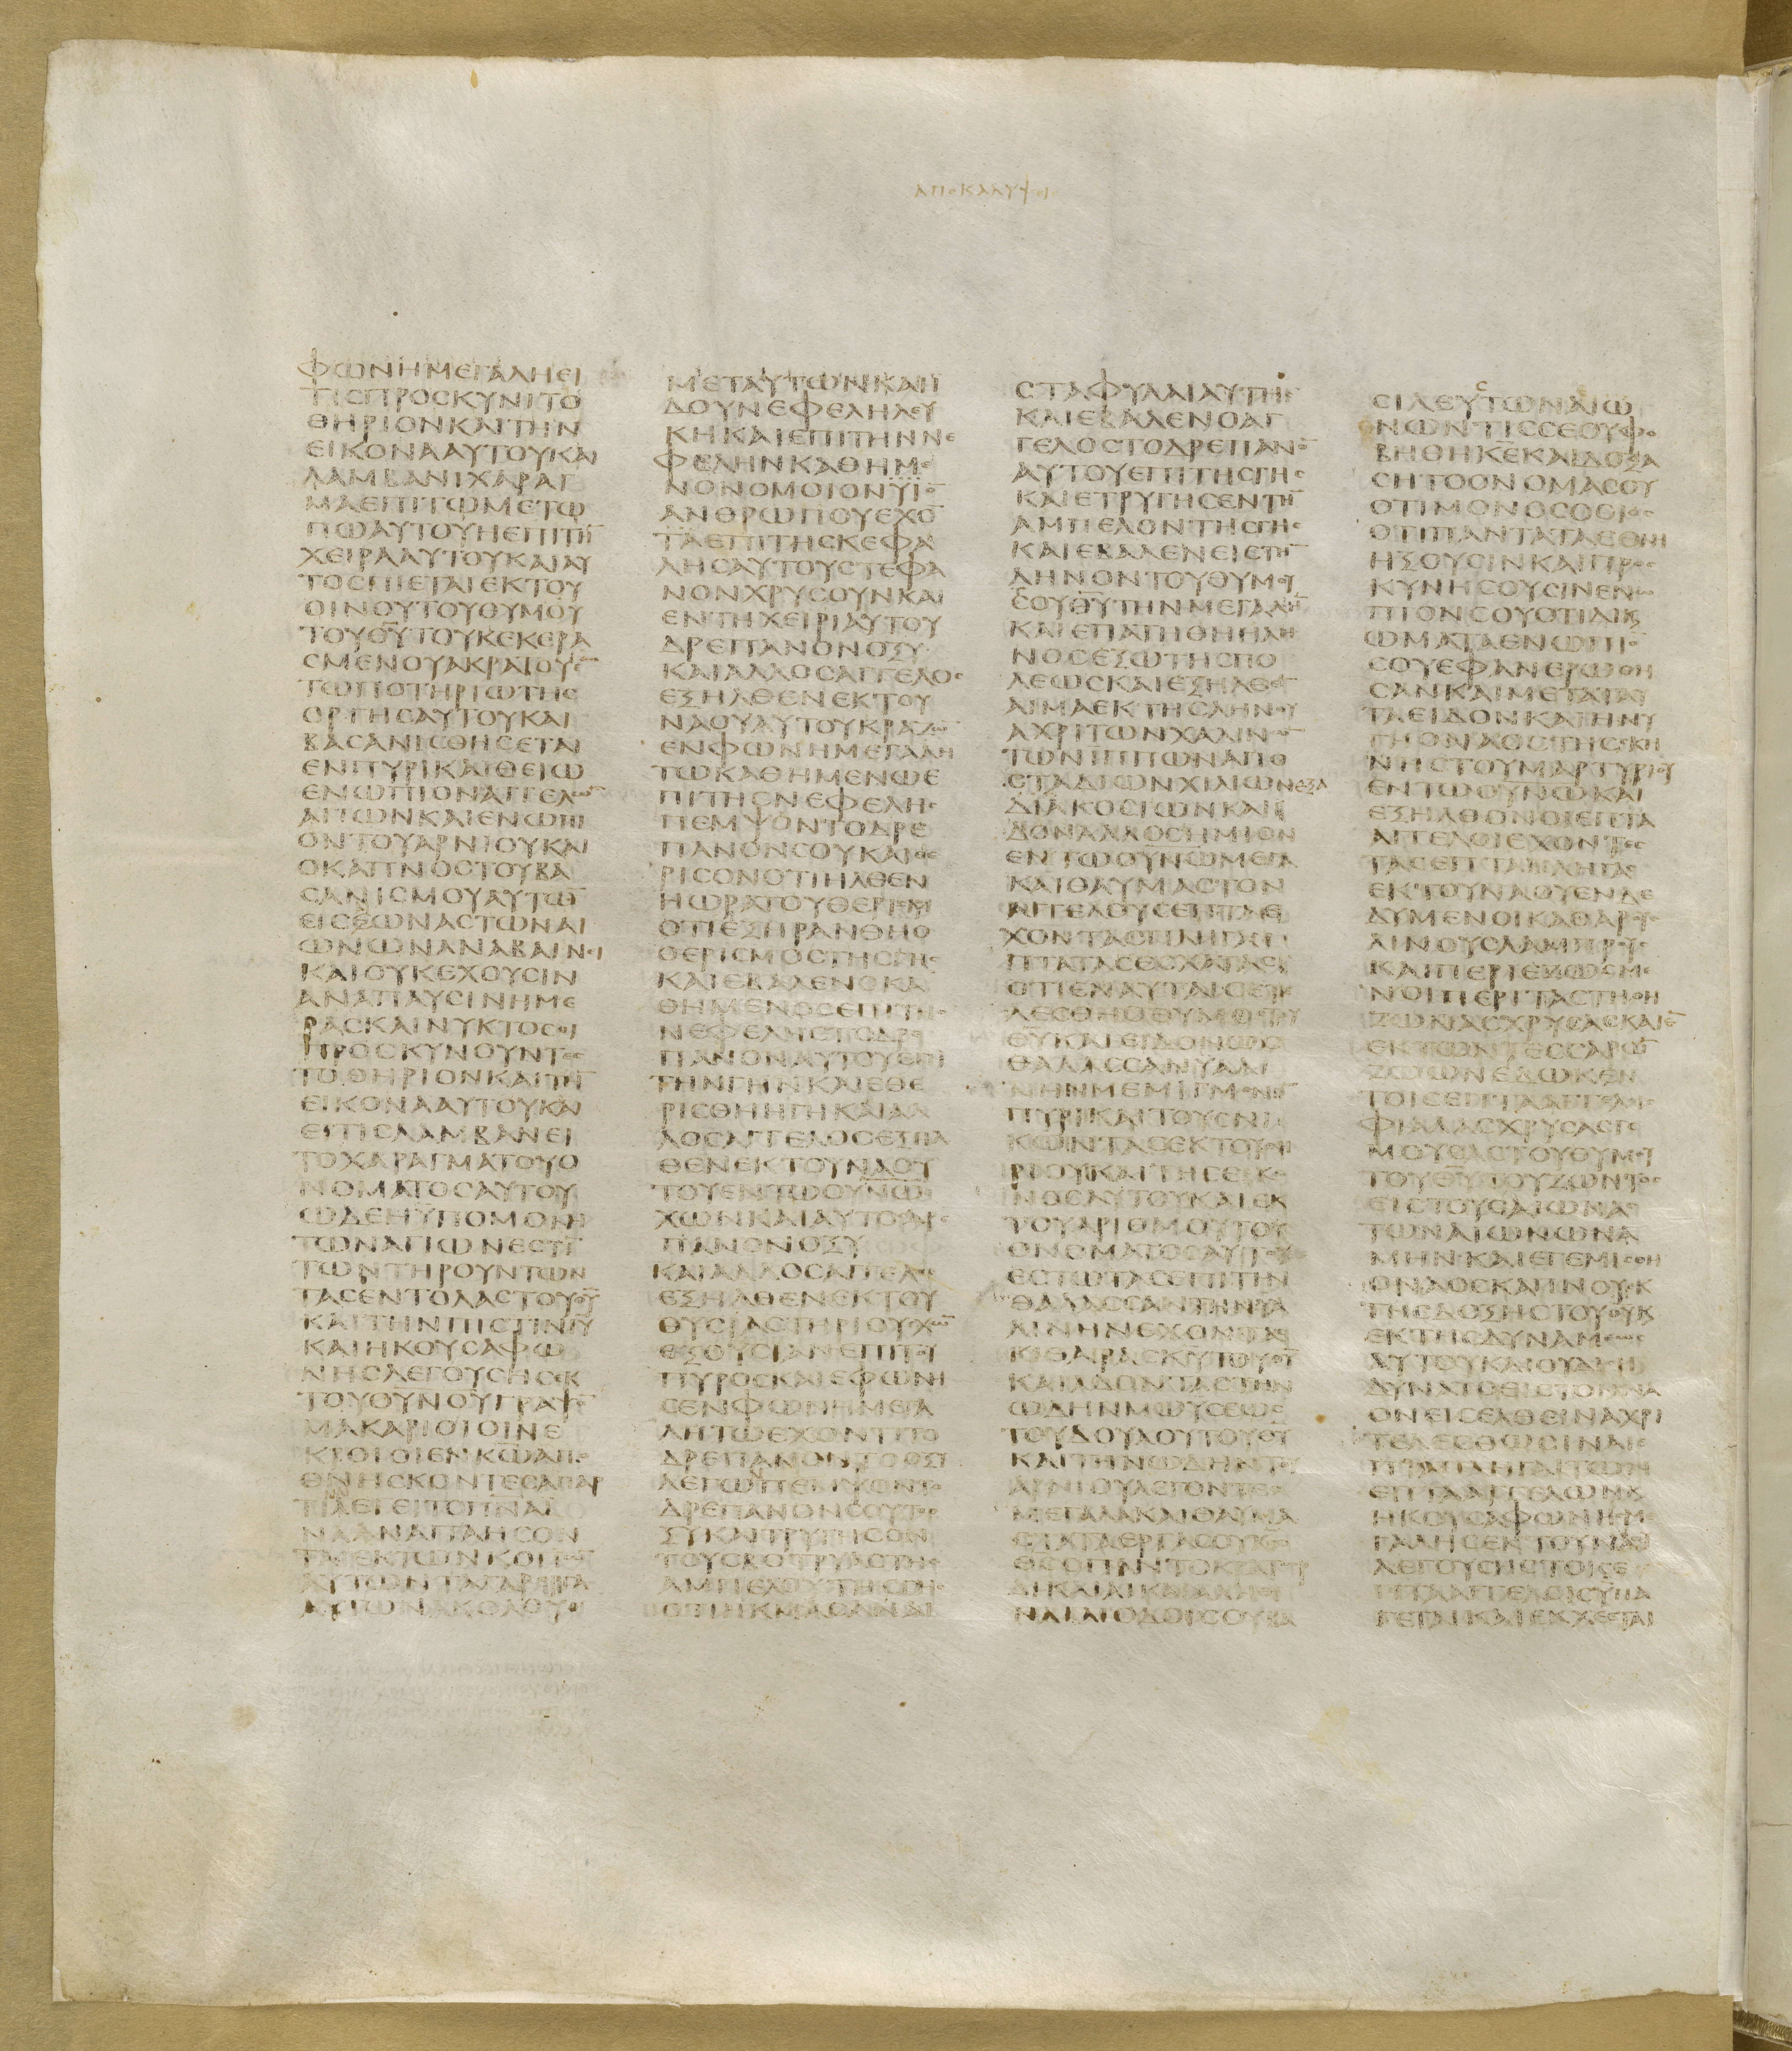 ΑΠΟΚΑΛΥΨΙ
ΦΩΝΗΜΕΓΑΛΗΕΙ
ΤΙΣΠΡΟΣΚΥΝΙΤΟ
ΘΗΡΙΟΝΚΑΙΤΗΝ
ΕΙΚΟΝΑΑΥΤΟΥΚΑΙ
ΛΑΜΒΑΝΙΧΑΡΑΓ
ΜΑΕΠΙΤΩΜΕΤΩ
ΠΩΑΥΤΟΥΗΕΠΙΤΗ̅
ΧΕΙΡΑΑΥΤΟΥΚΑΙΑΥ
ΤΟΣΠΙΕΤΑΙΕΚΤΟΥ
ΟΙΝΟΥΤΟΥΘΥΜΟΥ
ΤΟΥΘ̅Υ̅ΤΟΥΚΕΚΕΡΑ
ΣΜΕΝΟΥΑΚΡΑΤΟΥΕ̅
ΤΩΠΟΤΗΡΙΩΤΗΣ
ΟΡΓΗΣΑΥΤΟΥΚΑΙ
ΒΑΣΑΝΙΣΘΗΣΕΤΑΙ
ΕΝΠΥΡΙΚΑΙΘΕΙΩ
ΕΝΩΠΙΟΝΑΓΓΕΛΩ̅
ΑΓΙΩΝΚΑΙΕΝΩΠΙ
ΟΝΤΟΥΑΡΝΙΟΥΚΑΙ
ΟΚΑΠΝΟΣΤΟΥΒΑ
ΣΑΝΙΣΜΟΥΑΥΤΩ̅
ΕΙΣΕΩΝΑΣΤΩΝΑΙ
ΩΝΩΝΑΝΑΒΑΙΝΙ
ΚΑΙΟΥΚΕΧΟΥΣΙΝ
ΑΝΑΠΑΥΣΙΝΗΜΕ
ΡΑΣΚΑΙΝΥΚΤΟΣΟΙ
ΠΡΟΣΚΥΝΟΥΝΤΕΣ
ΤΟΘΗΡΙΟΝΚΑΙΤΗ̅
ΕΙΚΟΝΑΑΥΤΟΥΚΑΙ
ΕΙΤΙΣΛΑΜΒΑΝΕΙ
ΤΟΧΑΡΑΓΜΑΤΟΥΟ
ΝΟΜΑΤΟΣΑΥΤΟΥ
ΩΔΕΗΥΠΟΜΟΝΗ
ΤΩΝΑΓΙΩΝΕΣΤΙ̅
ΤΩΝΤΗΡΟΥΝΤΩΝ
ΤΑΣΕΝΤΟΛΑΣΤΟΥΘ̅Υ̅
ΚΑΙΤΗΝΠΙΣΤΙΝΙ̅Υ̅
ΚΑΙΗΚΟΥΣΑΦΩ
ΝΗΣΛΕΓΟΥΣΗΣΕΚ
ΤΟΥΟΥΝΟΥΓΡΑΨΟ̅
ΜΑΚΑΡΙΟΙΟΙΝΕ
ΚΡΟΙΟΙΕΝΚ̅Ω̅ΑΠΟ
ΘΝΗΣΚΟΝΤΕΣΑΠΑΡ
ΤΙΛΕΓΕΙΤΟΠΝΑΙ
ΝΑΑΝΑΠΑΗΣΟΝ
ΤΑΙΕΚΤΩΝΚΟΠΩ̅
ΑΥΤΩΝΤΑΓΑΡΕΡΓΑ
ΑΥΤΩΝΑΚΟΛΟΥΘΙ
ΜΕΤΑΥΤΩΝΚΑΙΙ
ΔΟΥΝΕΦΕΛΗΛΕΥ
ΚΗΚΑΙΕΠΙΤΗΝΝΕ
ΦΕΛΗΝΚΑΘΗΜΕ
ΝΟΝΟΜΟΙΟΝΫΪΟ̅
ΑΝΘΡΩΠΟΥΕΧΟ̅
ΤΑΕΠΙΤΗΣΚΕΦΑ
ΛΗΣΑΥΤΟΥΣΤΕΦΑ
ΝΟΝΧΡΥΣΟΥΝΚΑΙ
ΕΝΤΗΧΕΙΡΙΑΥΤΟΥ
ΔΡΕΠΑΝΟΝΟΞΥ
ΚΑΙΑΛΛΟΣΑΓΓΕΛΟΣ
ΕΞΗΛΘΕΝΕΚΤΟΥ
ΝΑΟΥΑΥΤΟΥΚΡΑΖΩ̅
ΕΝΦΩΝΗΜΕΓΑΛΗ
ΤΩΚΑΘΗΜΕΝΩΕ
ΠΙΤΗΣΝΕΦΕΛΗΣ
ΠΕΜΨΟΝΤΟΔΡΕ
ΠΑΝΟΝΣΟΥΚΑΙΘΕ
ΡΙΣΟΝΟΤΙΗΛΘΕΝ
ΗΩΡΑΤΟΥΘΕΡΙΣΜΟΥ
ΟΤΙΕΞΗΡΑΝΘΗΟ
ΘΕΡΙΣΜΟΣΤΗΣΓΗΣ
ΚΑΙΕΒΑΛΕΝΟΚΑ
ΘΗΜΕΝΟΣΕΠΙΤΗΣ
ΝΕΦΕΛΗΣΤΟΔΡΕ
ΠΑΝΟΝΑΥΤΟΥΕΠΙ
ΤΗΝΓΗΝΚΑΙΕΘΕ
ΡΙΣΘΗΗΓΗΚΑΙΑΛ
ΛΟΣΑΓΓΕΛΟΣΕΞΗΛ
ΘΕΝΕΚΤΟΥΝΑΟΥ
ΤΟΥΕΝΤΩΟΥΝΩ
ΧΩΝΚΑΙΑΥΤΟΣΔΡΕ
ΠΑΝΟΝΟΞΥ
ΚΑΙΑΛΛΟΣΑΓΓΕΛΟΣ
ΕΞΗΛΘΕΝΕΚΤΟΥ
ΘΥΣΙΑΣΤΗΡΙΟΥΕΧΩ̅
ΕΞΟΥΣΙΑΝΕΠΙΤΟΥ
ΠΥΡΟΣΚΑΙΕΦΩΝΗ
ΣΕΝΦΩΝΗΜΕΓΑ
ΛΗΤΩΕΧΟΝΤΙΤΟ
ΔΡΕΠΑΝΟΝΤΟΟΞΥ
ΛΕΓΩΝΠΕΜΨΟΝΤΟ
ΔΡΕΠΑΝΟΝΣΟΥΤΟΟ
ΞΥΚΑΙΤΡΥΓΗΣΟΝ
ΤΟΥΣΒΟΤΡΥΑΣΤΗΣ
ΑΜΠΕΛΟΥΤΗΣΓΗΣ
ΟΤΙΗΚΜΑΣΑΝΑΙ
ΣΤΑΦΥΛΑΙΑΥΤΗΣ
ΚΑΙΕΒΑΛΕΝΟΑΓ
ΓΕΛΟΣΤΟΔΡΕΠΑΝΟ̅
ΑΥΤΟΥΕΠΙΤΗΣΓΗΣ
ΚΑΙΕΤΡΥΓΗΣΕΝΤΗ̅
ΑΜΠΕΛΟΝΤΗΣΓΗΣ
ΚΑΙΕΒΑΛΕΝΕΙΣΤΗ̅
ΛΗΝΟΝΤΟΥΘΥΜΟΥ
ΣΟΥΘ̅Υ̅ΤΗΝΜΕΓΑΛΗ̅
ΚΑΙΕΠΑΤΗΘΗΗΛΗ
ΝΟΣΕΞΩΤΗΣΠΟ
ΛΕΩΣΚΑΙΕΞΗΛΘΕ̅
ΑΙΜΑΕΚΤΗΣΛΗΝΟΥ
ΑΧΡΙΤΩΝΧΑΛΙΝΩ̅
ΤΩΝΙΠΠΩΝΑΠΟ
ΣΤΑΔΙΩΝΧΙΛΙΩΝΕΞΑ
ΔΙΑΚΟΣΙΩΝΚΑΙΕΙ
ΔΟΝΑΛΛΟΣΗΜΙΟΝ
ΕΝΤΩΟΥΝΩΜΕΓΑ
ΚΑΙΘΑΥΜΑΣΤΟΝ
ΑΓΓΕΛΟΥΣΕΠΤΑΕ
ΧΟΝΤΑΣΠΛΗΓΑΣΕ
ΠΤΑΤΑΣΕΣΧΑΤΑΣ
ΟΤΙΕΝΑΥΤΑΙΣΕΤΕ
ΛΕΣΘΗΟΘΥΜΟΣΤΟΥ
Θ̅Υ̅ΚΑΙΕΙΔΟΝΩΣ
ΘΑΛΑΣΣΑΝΥΑΛΙ
ΝΗΝΜΕΜΙΓΜΕΝΗ̅
ΠΥΡΙΚΑΙΤΟΥΣΝΙ
ΚΩΝΤΑΣΕΚΤΟΥΘΗ
ΡΙΟΥΚΑΙΤΗΣΕΙΚΟ
ΝΟΣΑΥΤΟΥΚΑΙΕΚ
ΤΟΥΑΡΙΘΜΟΥΤΟΥ
ΟΝΟΜΑΤΟΣΑΥΤΟΥ
ΕΣΤΩΤΑΣΕΠΙΤΗΝ
ΘΑΛΑΣΣΑΝΤΗΝΥΑ
ΛΙΝΗΝΕΧΟΝΤΑΣ
ΚΙΘΑΡΑΣΚ̅Υ̅ΤΟΥΘ̅Υ̅
ΚΑΙΑΔΟΝΤΑΣΤΗΝ
ΩΔΗΝΜΩΥΣΕΩΣ
ΤΟΥΔΟΥΛΟΥΤΟΥΘ̅Υ̅
ΚΑΙΤΗΝΩΔΗΝΤΟΥ
ΑΡΝΙΟΥΛΕΓΟΝΤΕΣ
ΜΕΓΑΛΑΚΑΙΘΑΥΜΑ
ΣΤΑΤΑΕΡΓΑΣΟΥΚ̅Ε̅
ΘΣΟΠΑΝΤΟΚΡΑΤΩΡ
ΔΙΚΑΙΑΙΚΑΙΑΛΗΘΙ
ΝΑΙΑΙΟΔΟΙΣΟΥΒΑ
ΣΙΛΕΥΤΩΝΑΙΩ
ΝΩΝΤΙΣΣΕΟΥΦΟ
ΒΗΘΗΚ̅Ε̅ΚΑΙΔΟΞΑ
ΣΗΤΟΟΝΟΜΑΣΟΥ
ΟΤΙΜΟΝΟΣΟΣΙΟΣ
ΟΤΙΠΑΝΤΑΤΑΕΘΝΗ
ΗΞΟΥΣΙΝΚΑΙΠΡΟΣ
ΚΥΝΗΣΟΥΣΙΝΕΝΩ
ΠΙΟΝΣΟΥΟΤΙΔΙΚΕ
ΩΜΑΤΑΕΝΩΠΙΟ̅
ΣΟΥΕΦΑΝΕΡΩΘΗ
ΣΑΝΚΑΙΜΕΤΑΤΑΥ
ΤΑΕΙΔΟΝΚΑΙΗΝΥ
ΓΗΟΝΑΟΣΤΗΣΣΚΗ
ΝΗΣΤΟΥΜΑΡΤΥΡΙΟΥ
ΕΝΤΩΟΥΝΩΚΑΙ
ΕΞΗΛΘΟΝΟΙΕΠΤΑ
ΑΓΓΕΛΟΙΕΧΟΝΤΕΣ
ΤΑΣΕΠΤΑΠΛΗΓΑΣ
ΕΚΤΟΥΝΑΟΥΕΝΔΕ
ΔΥΜΕΝΟΙΚΑΘΑΡΟΥΣ
ΛΙΝΟΥΣΛΑΜΠΡΟΥΣ
ΚΑΙΠΕΡΙΕΖΩΣΜΕ
ΝΟΙΠΕΡΙΤΑΣΤΗΘΗ
ΖΩΝΑΣΧΡΥΣΑΣΚΑΙΕ̅
ΕΚΤΩΝΤΕΣΣΑΡΩ̅
ΖΩΩΝΕΔΩΚΕΝ
ΤΟΙΣΕΠΤΑΑΓΓΕΛΟΙΣ
ΦΙΑΛΑΣΧΡΥΣΑΣΓΕ
ΜΟΥΣΑΣΤΟΥΘΥΜΟΥ
ΤΟΥΘ̅Υ̅ΤΟΥΖΩΝΤΟΣ
ΕΙΣΤΟΥΣΑΙΩΝΑΣ
ΤΩΝΑΙΩΝΩΝΑ
ΜΗΝΚΑΙΕΓΕΜΙΣΘΗ
ΟΝΑΟΣΚΑΠΝΟΥΕΚ
ΤΗΣΔΟΞΗΣΤΟΥΘ̅Υ̅Κ
ΕΚΤΗΣΔΥΝΑΜΕΩΣ
ΑΥΤΟΥΚΑΙΟΥΔΙΣΕ
ΔΥΝΑΤΟΕΙΣΤΟΝΝΑ
ΟΝΕΙΣΕΛΘΕΙΝΑΧΡΙ
ΤΕΛΕΣΘΩΣΙΝΑΙΕ
ΠΤΑΠΛΗΓΑΙΤΩΝ
ΕΠΤΑΑΓΓΕΛΩΝΚ
ΗΚΟΥΣΑΦΩΝΗΣΜΕ
ΓΑΛΗΣΕΝΤΟΥΝΑΟΥ
ΛΕΓΟΥΣΗΣΤΟΙΣΕ
ΠΤΑΑΓΓΕΛΟΙΣΥΠΑ
ΓΕΤΑΙΚΑΙΕΚΧΕΕΤΑΙ